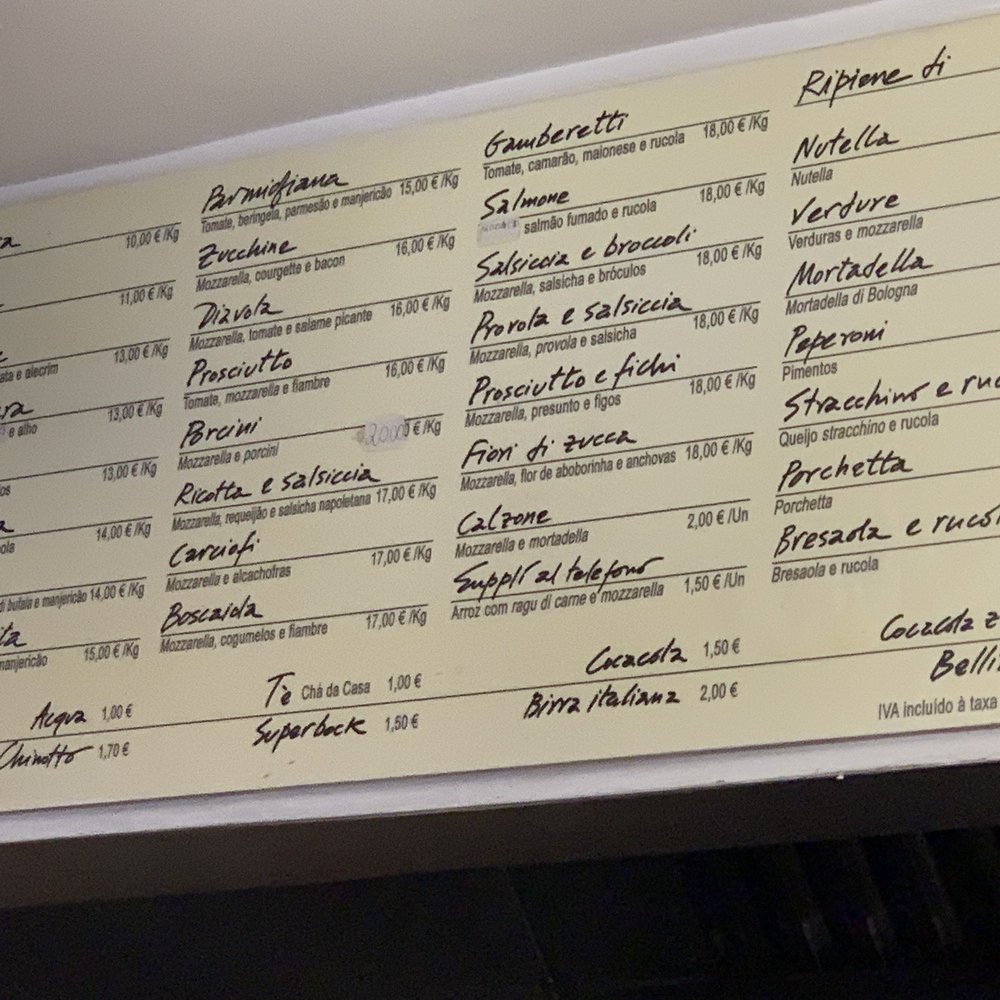 10,00 €/Kg
11,00 €/Kg
13,00 €/Kg
e alecrim
13,00 €/Kg
e alho
13,00 €/Kg
14,00 €/Kg
di bufala e manjericão 14,00 €/Kg
15,00 €/Kg
manjericão
Parmigiana
Tomate, beringela, parmesão e manjericão 15,00 €/Kg
Zucchine
Mozzarella, courgette e bacon 16,00 €/Kg
Diavola
Mozzarella, tomate e salame picante 16,00 €/Kg
Prosciutto
Tomate, mozzarella e fiambre 16,00 €/Kg
Porcini
Mozzarella e porcini €/Kg
Ricotta e salsiccia
Mozzarella, requeijão e salsicha napoletana 17,00 €/Kg
Carciofi
Mozzarella e alcachofras 17,00 €/Kg
Boscaiola
Mozzarella, cogumelos e fiambre 17,00 €/Kg
Gamberetti
Tomate, camarão, maionese e rucola 18,00 €/Kg
Salmone
salmão fumado e rucola 18,00 €/Kg
Salsiccia e broccoli
Mozzarella, salsicha e bróculos 18,00 €/Kg
Provola e salsiccia
Mozzarella, provola e salsicha 18,00 €/Kg
Prosciutto e fichi
Mozzarella, presunto e figos 18,00 €/Kg
Fiori di zucca
Mozzarella, flor de aboborinha e anchovas 18,00 €/Kg
Calzone
Mozzarella e mortadella 2,00 €/Un
Supplì al telefono
Arroz com ragu di carne e mozzarella 1,50 €/Un
Ripiene di
Nutella
Nutella
Verdure
Verduras e mozzarella
Mortadella
Mortadella di Bologna
Peperoni
Pimentos
Stracchino e ruc
Queijo stracchino e rucola
Porchetta
Porchetta
Bresaola e rucol
Bresaola e rucola
Acqua 1,00 €
Tè Chá da Casa 1,00 €
Cocacola 1,50 €
Cocacola z
Chinotto 1,70 €
Superbock 1,50 €
Birra italiana 2,00 €
Belli
IVA incluído à taxa